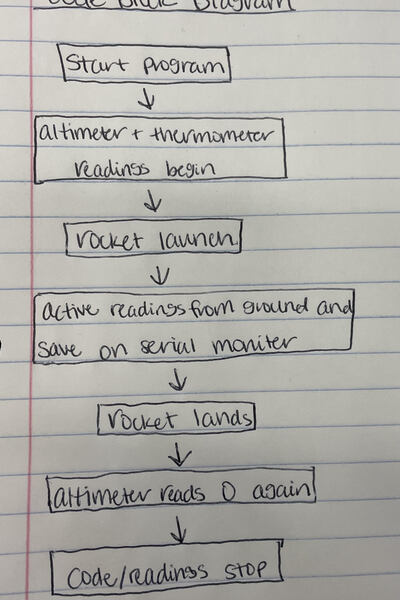 Code Block Diagram
Start program
altimeter + thermometer
readings begin
rocket launch
active readings from ground and
save on serial moniter
rocket lands
altimeter reads 0 again
code/readings stop